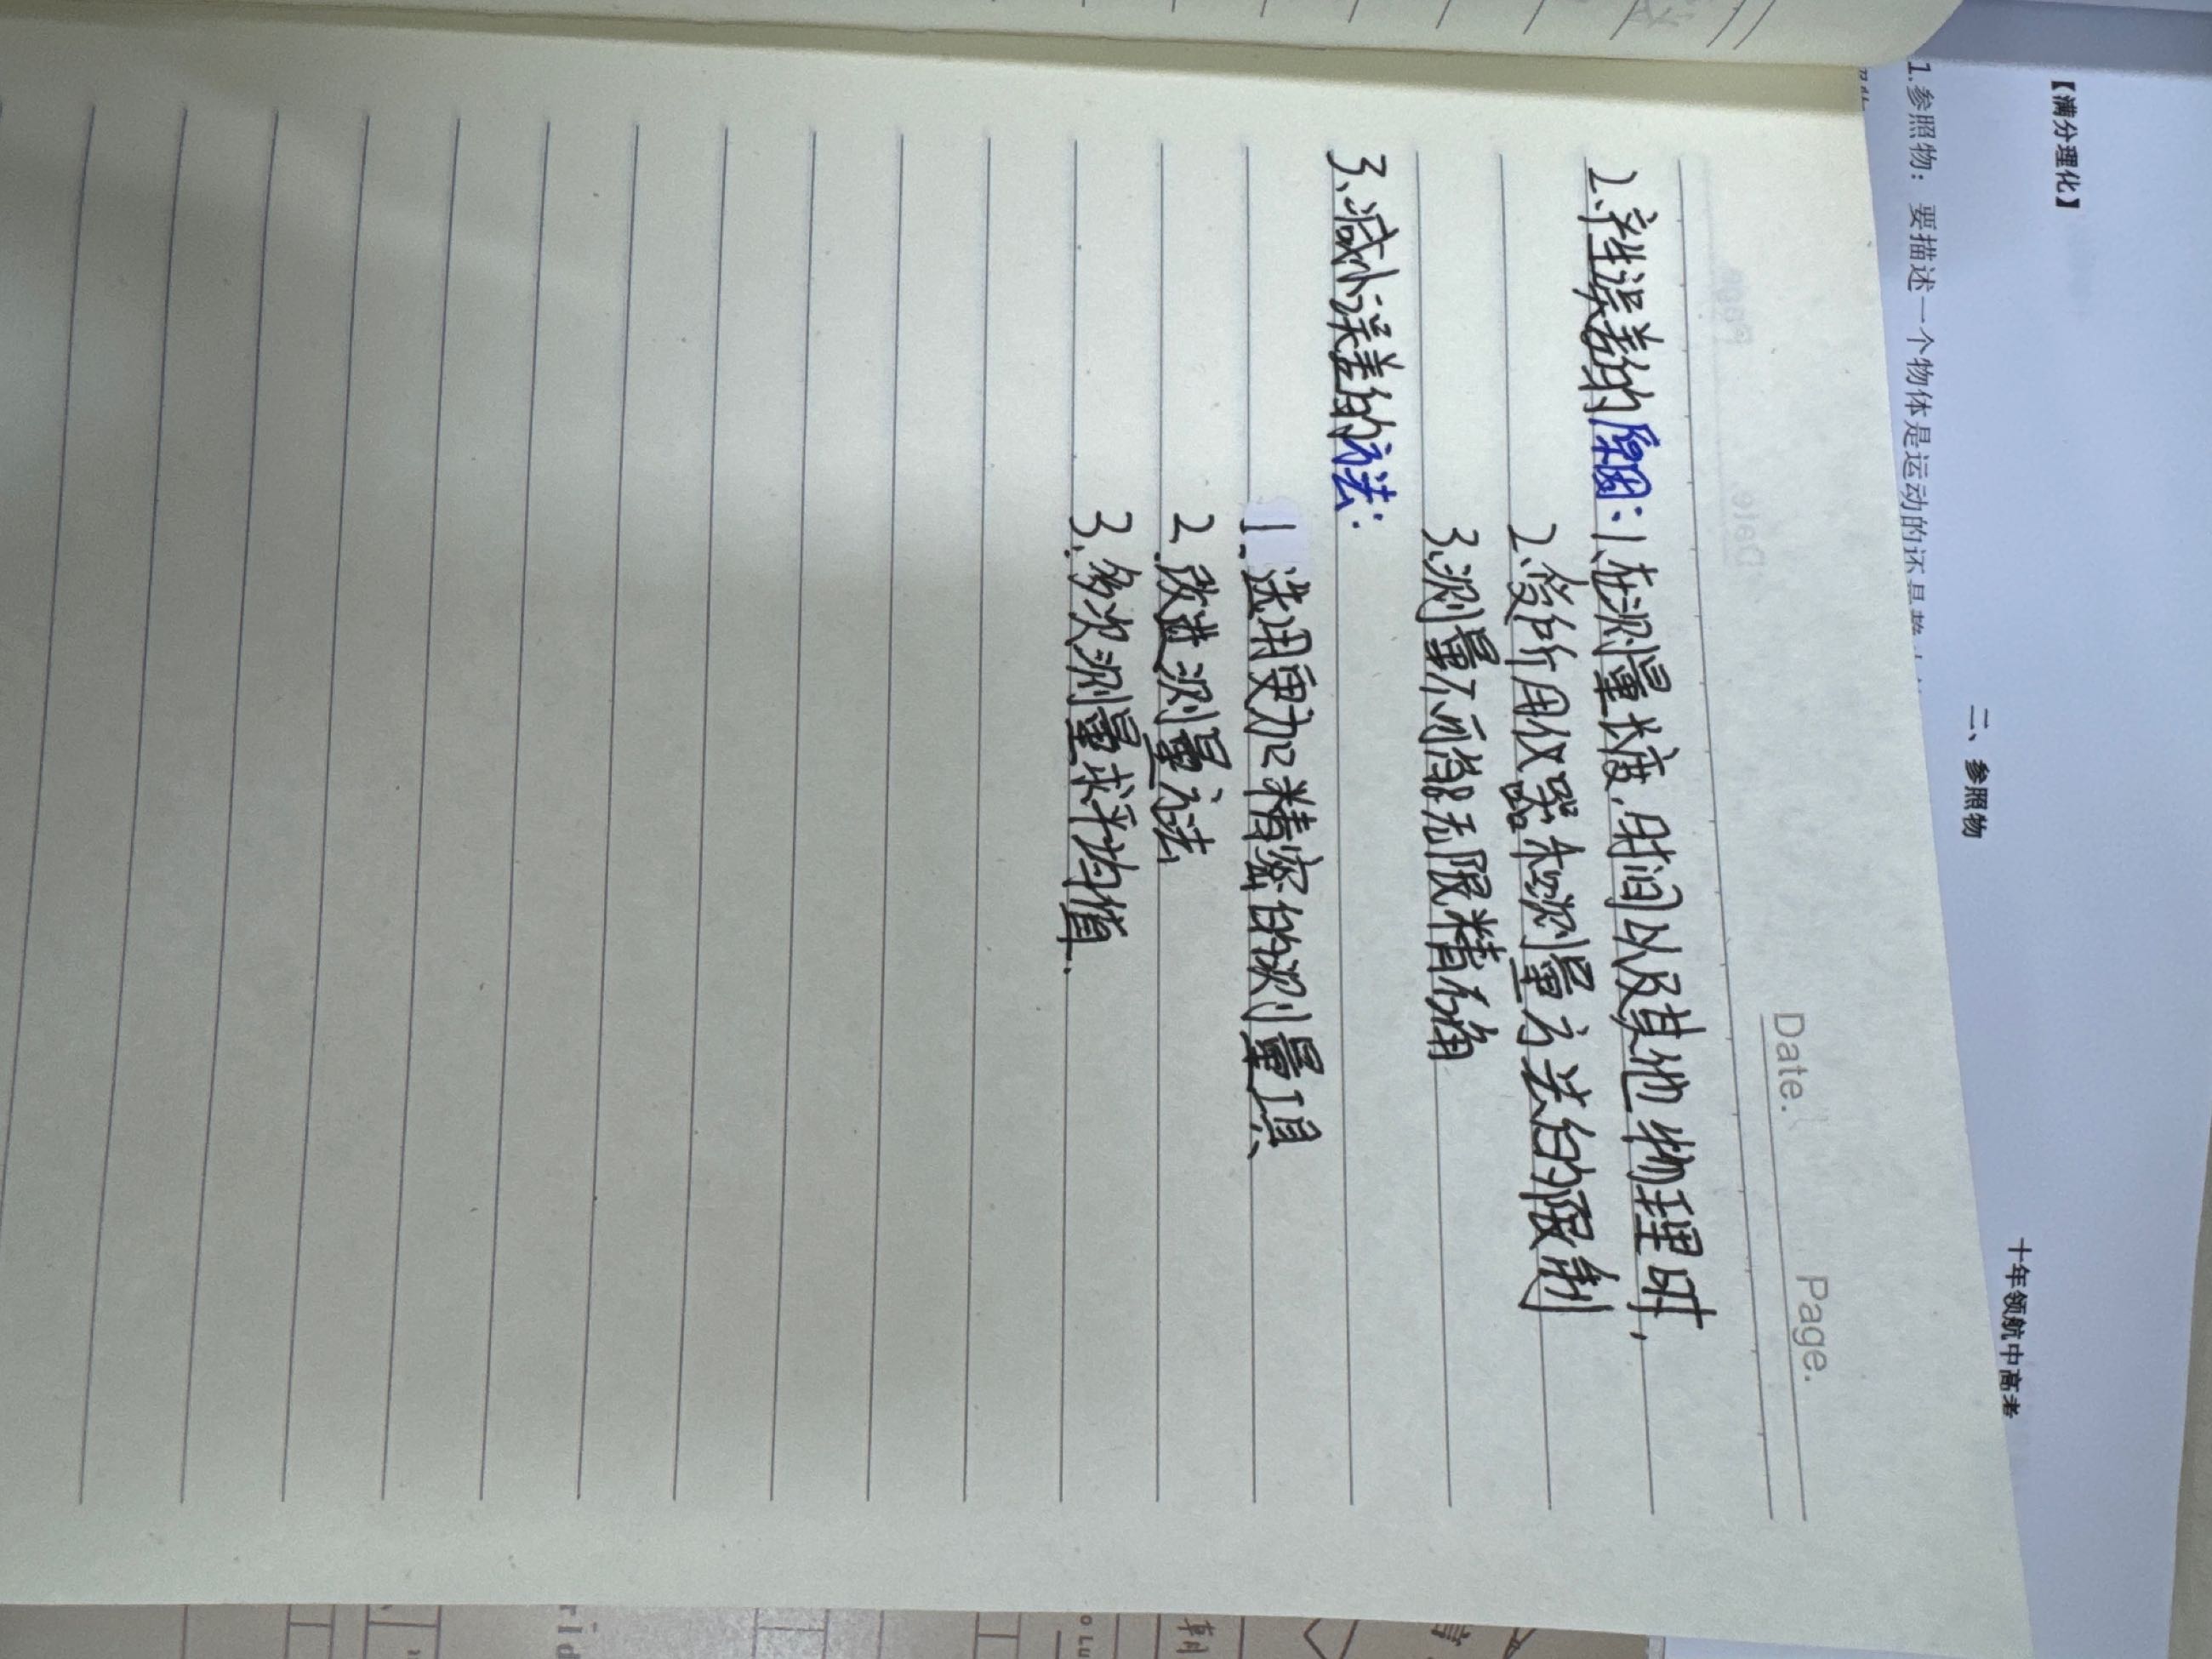 【满分理化】
十年领航中高考
二、参照物
1.参照物：要描述一个物体是运动的还是
Date.
Page.
2.产生误差的原因：1、在测量长度,时间以及其他物理时,
2.受所用仪器和测量方法的限制
3.测量不可能无限精确
3、减小误差的方法:
1.选用更加精密的测量工具、
2.改进测量方法
3.多次测量求平均值.